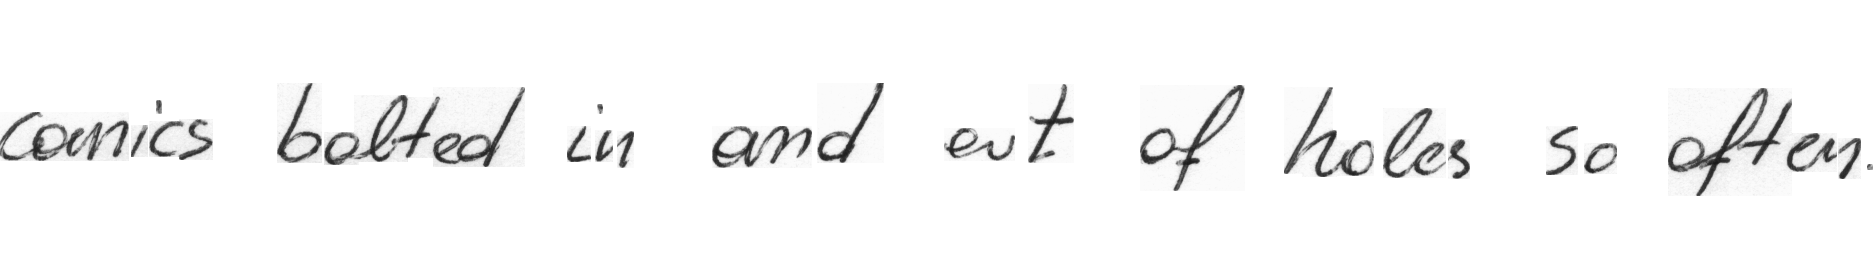 comics bolted in and out of holes so often.